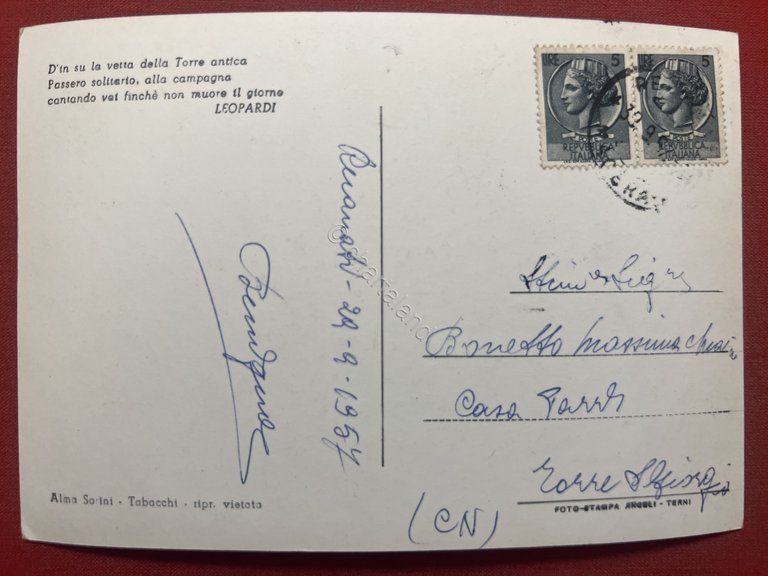 D'in su la vetta della Torre antica
Passero solitario, alla campagna
cantando vai finchè non muore il giorno
LEOPARDI
LIRE 5
POSTE
REPVBBLICA
ITALIANA
LIRE 5
POSTE
REPVBBLICA
ITALIANA
Recanati - 29-9-1957
Bonetto Massima
Casa
Torre S Giorgio
(CN)
FOTO-STAMPA ANGELI - TERNI
Alma Sorini - Tabacchi - ripr. vietata